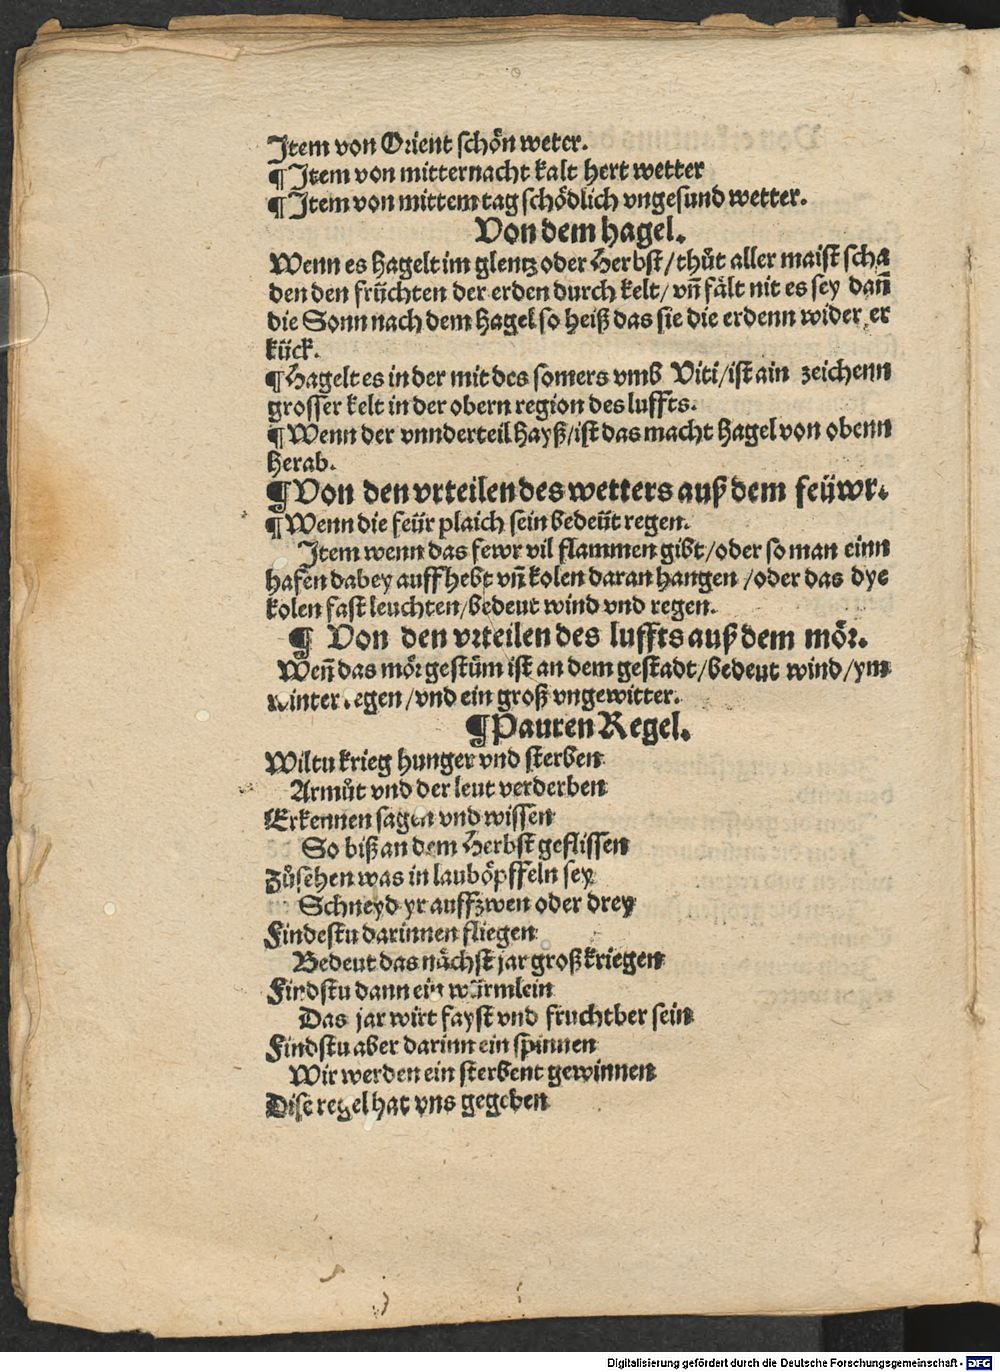 Item von Orient schön weter.
¶ Item von mitternacht kalt hert wetter
¶ Item von mittem tag schödlich vngesund wetter.
Von dem hagel.
Wenn es hagelt im glentz oder Herbst/thůt aller maist scha
den den früchten der erden durch kelt/vñ fält nit es sey dañ
die Sonn nach dem Hagel so heiß das sie die erdenn wider er
kück.
¶ Hagelt es in der mit des somers vmb Viti/ist ain zeichenn
grosser kelt in der obern region des luffts.
¶ Wenn der vnnderteil hayß/ist das macht hagel von obenn
herab.
¶ Von den vrteilen des wetters auß dem feüwr.
¶ Wenn die feür plaich sein bedeüt regen.
Item wenn das fewr vil flammen gibt/oder so man einn
hafen dabey auffhebt vñ kolen daran hangen /oder das dye
kolen fast leuchten/bedeut wind vnd regen.
¶ Von den vrteilen des luffts auß dem mör.
Weñ das mör gestüm ist an dem gestadt/bedeut wind/ym
winter regen/vnd ein groß vngewitter.
¶ Pauren Regel.
Wiltu krieg hunger vnd sterben
Armůt vnd der leut verderben
Erkennen sagen vnd wissen
So biß an dem Herbst geflissen
Zůsehen was in lauböpffeln sey
Schneyd yr auff zwen oder drey
Findestu darinnen fliegen
Bedeut das nächst jar groß kriegen
Findstu dann ein würmlein
Das jar wirt fayst vnd fruchtber sein
Findstu aber darinn ein spinnen
Wir werden ein sterbent gewinnen
Dise regel hat vns gegeben
Digitalisierung gefördert durch die Deutsche Forschungsgemeinschaft - DFG